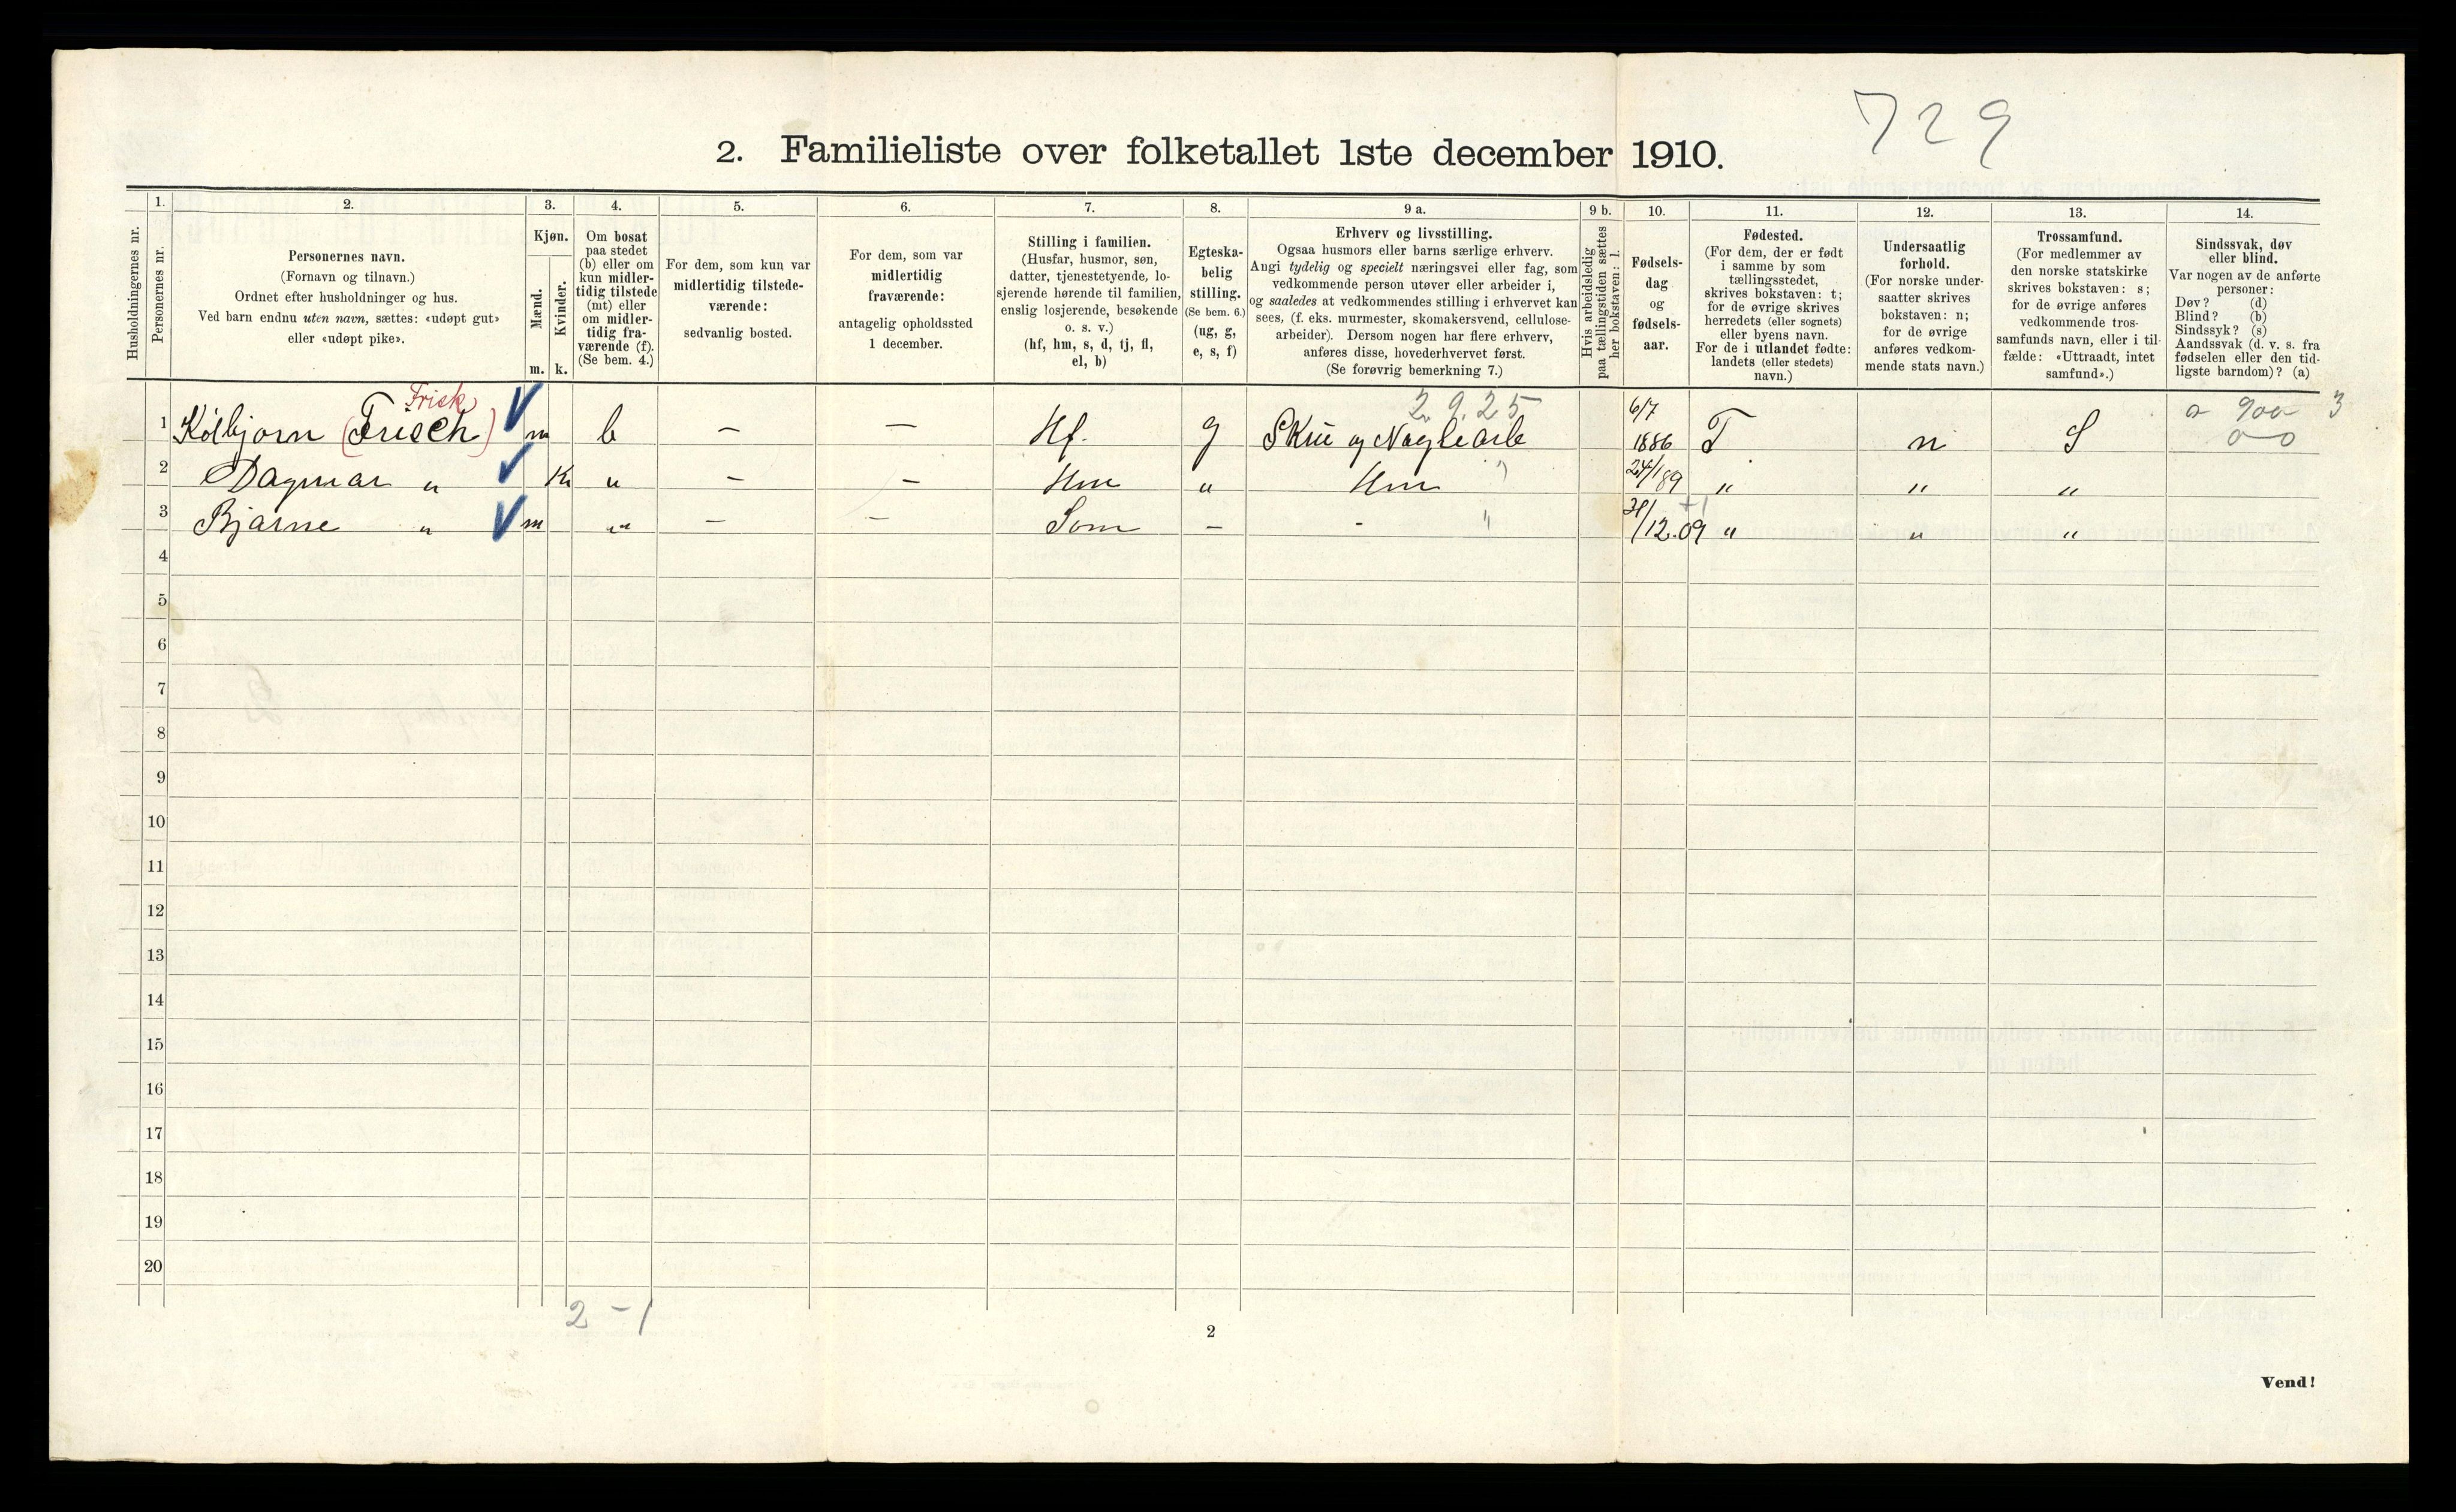 729
2. Familieliste over folketallet 1ste december 1910.
Husholdningernes nr.
1.
Personernes nr.
2.
Personernes navn.
(Fornavn og tilnavn.)
Ordnet efter husholdninger og hus.
Ved barn endnu uten navn, sættes: «udøpt gut»
eller «udøpt pike».
3.
Kjøn.
Mænd.
Kvinder.
m. k.
4.
Om bosat
paa stedet
(b) eller om
kun midler-
tidig tilstede
(mt) eller
om midler-
tidig fra-
værende (f).
(Se bem. 4.)
5.
For dem, som kun var
midlertidig tilstede-
værende:
sedvanlig bosted.
6.
For dem, som var
midlertidig
fraværende:
antagelig opholdssted
1 december.
7.
Stilling i familien.
(Husfar, husmor, søn,
datter, tjenestetyende, lo-
sjerende hørende til familien,
enslig losjerende, besøkende
o. s. v.)
(hf, hm, s, d, tj, fl,
el, b)
8.
Egteska-
belig
stilling.
(Se bem. 6.)
(ug, g,
e, s, f)
9 a.
Erhverv og livsstilling.
Ogsaa husmors eller barns særlige erhverv.
Angi tydelig og specielt næringsvei eller fag, som
vedkommende person utøver eller arbeider i,
og saaledes at vedkommendes stilling i erhvervet kan
sees, (f. eks. murmester, skomakersvend, cellulose-
arbeider). Dersom nogen har flere erhverv,
anføres disse, hovederhvervet først.
(Se forøvrig bemerkning 7.)
9 b.
Hvis arbeidsledig
paa tællingstiden sættes
her bokstaven: l.
10.
Fødsels-
dag
og
fødsels-
aar.
11.
Fødested.
(For dem, der er født
i samme by som
tællingsstedet,
skrives bokstaven: t;
for de øvrige skrives
herredets (eller sognets)
eller byens navn.
For de i utlandet fødte:
landets (eller stedets)
navn.)
12.
Undersaatlig
forhold.
(For norske under-
saatter skrives
bokstaven: n;
for de øvrige
anføres vedkom-
mende stats navn.)
13.
Trossamfund.
(For medlemmer av
den norske statskirke
skrives bokstaven: s;
for de øvrige anføres
vedkommende tros-
samfunds navn, eller i til-
fælde: «Uttraadt, intet
samfund».)
14.
Sindssvak, døv
eller blind.
Var nogen av de anførte
personer:
Døv? (d)
Blind? (b)
Sindssyk? (s)
Aandssvak (d. v. s. fra
fødselen eller den tid-
ligste barndom)? (a)
Frisk 2.9.25 3
1 Kolbjørn (Frisch) m b — — Hf. g Skrue og Naglearb 6/7 1886 T n S
2 Dagmar " K " — — Hm " Hm 24/1 89 " " "
3 Bjarne " m " — — Søn — - 31/12.09 " " "
4
5
6
7
8
9
10
11
12
13
14
15
16
17
18
19
20
2 - 1
2
Vend!